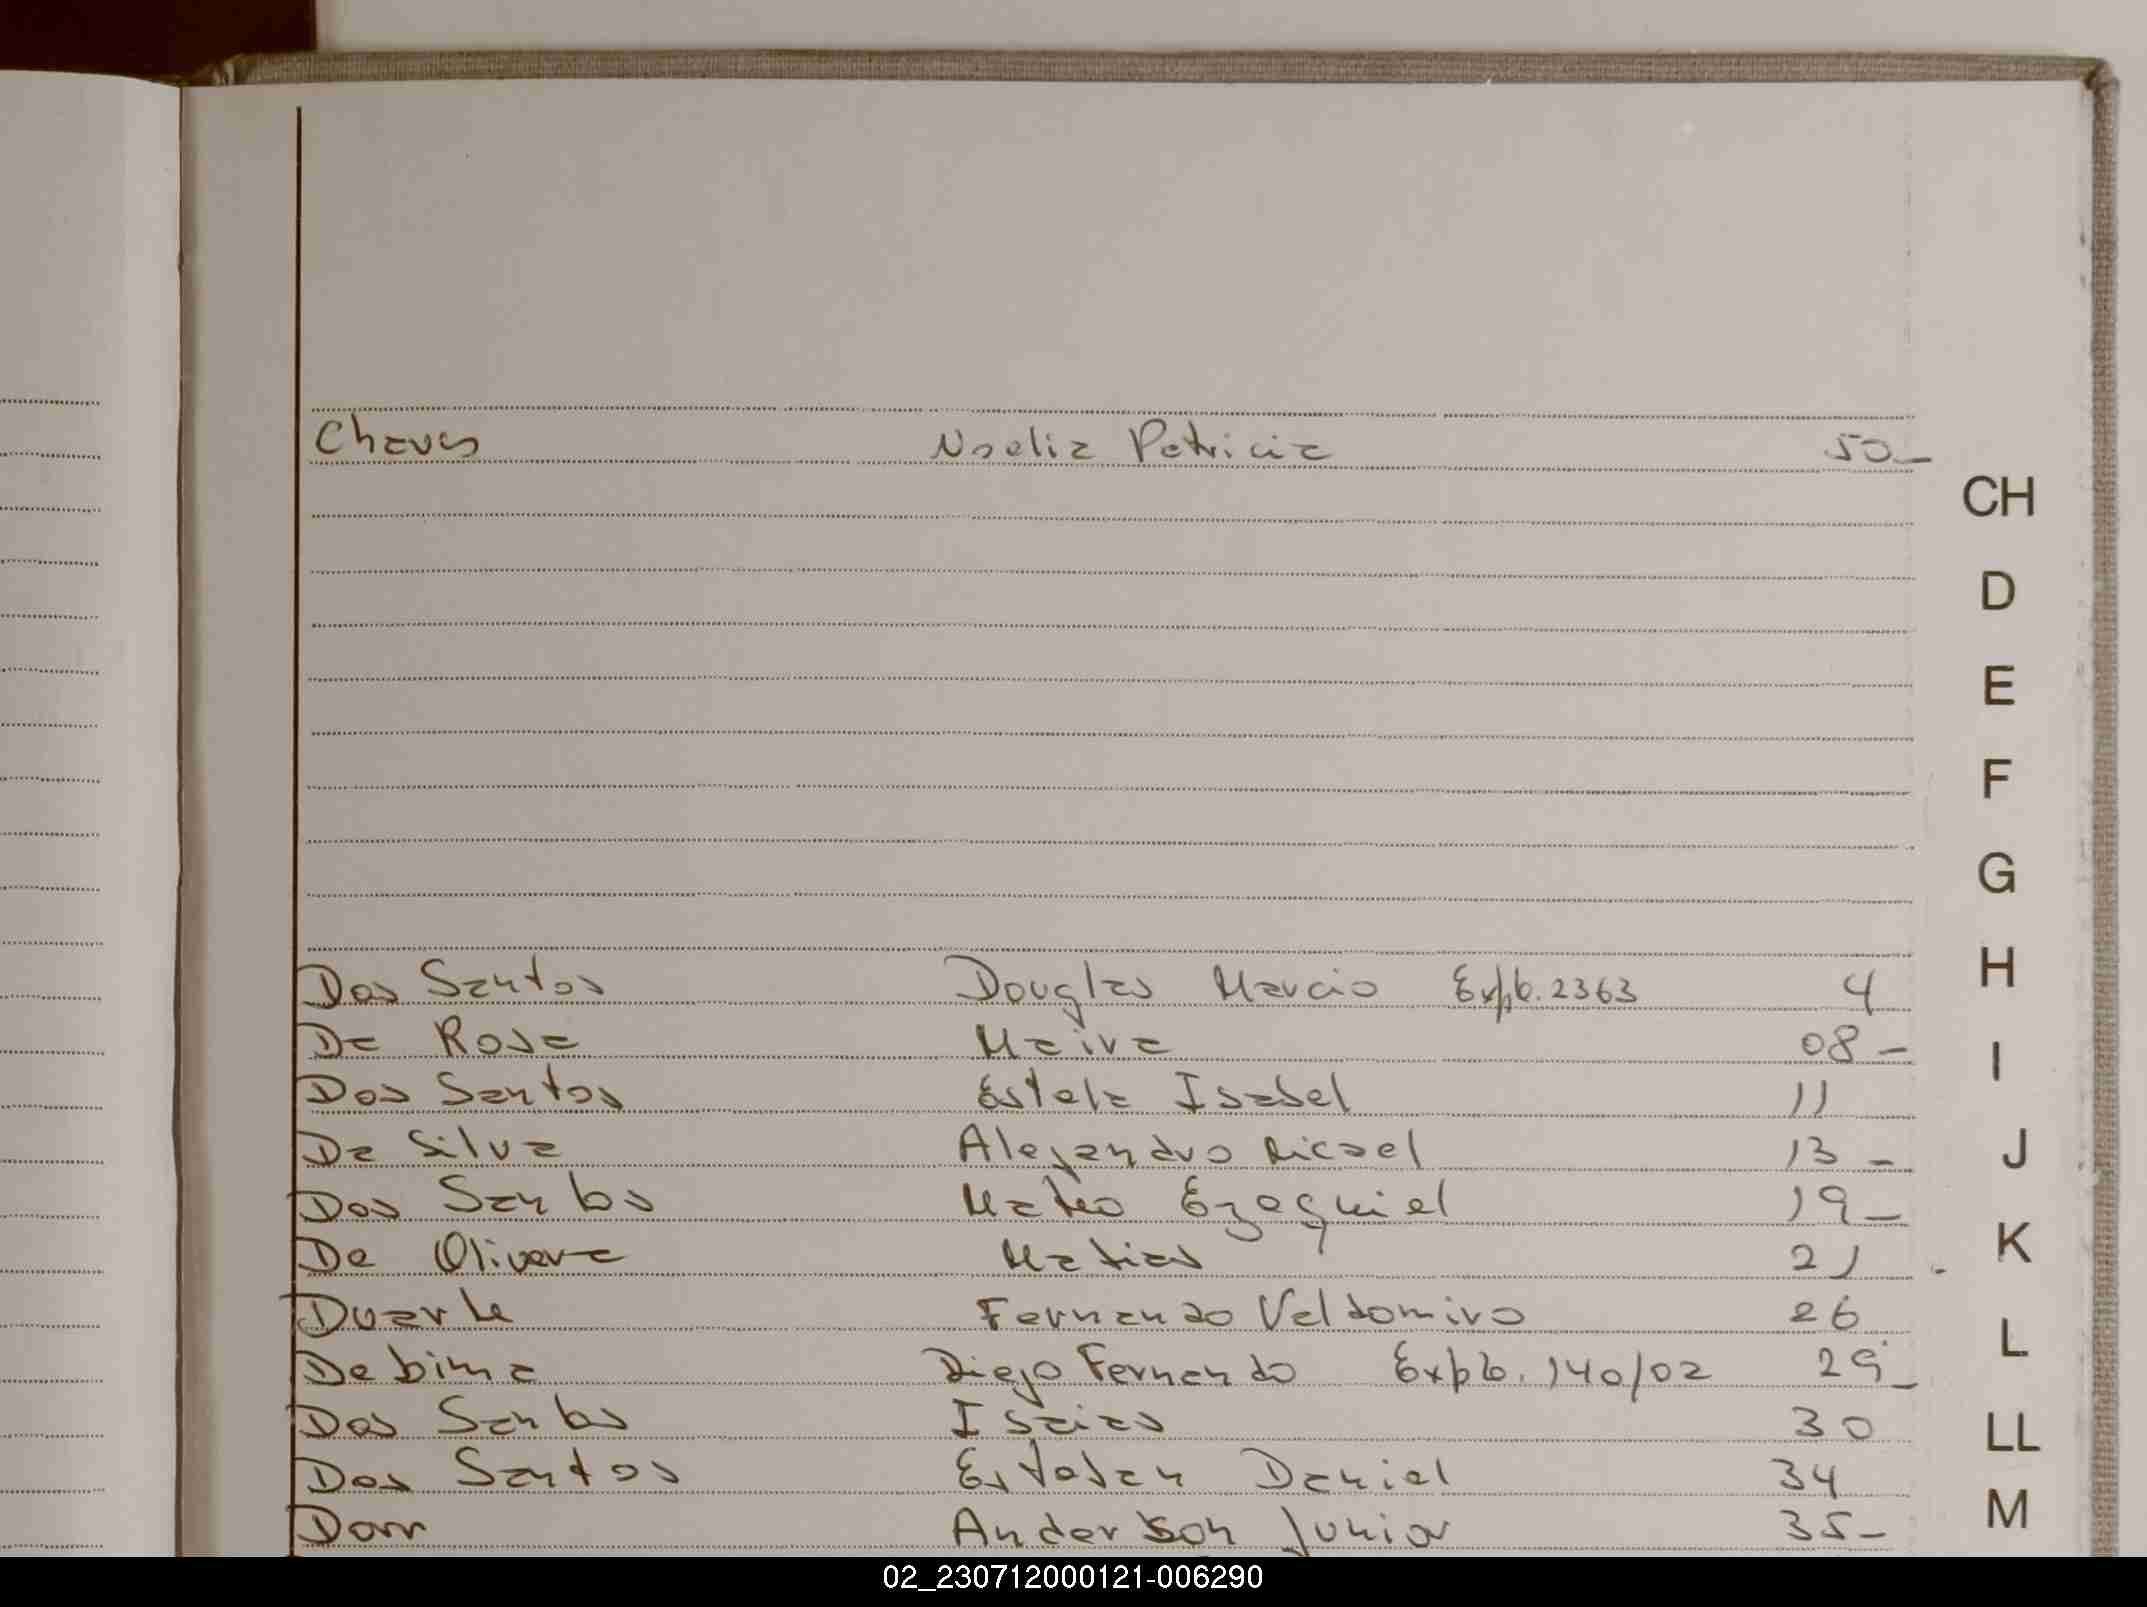 Chaves Noelia Patricia 50_
CH
D
E
F
G
Dos Santos Douglas Marcio Expte. 2363 4
H
Da Rosa Maiva 08 -
I
Dos Santos Estela Isabel 11
Da Silva Alejandro Ricael 13 -
J
Dos Santos Mateo Ezequiel 19_
De Olivera Matias 21
K
Duarte Fernando Valdomiro 26
L
Debima Diego Fernando Expte. 140/02 29_
Dos Santos Isaias 30
LL
Dos Santos Estaban Daniel 34
M
Dorr Anderson Junior 35-
02_230712000121-006290